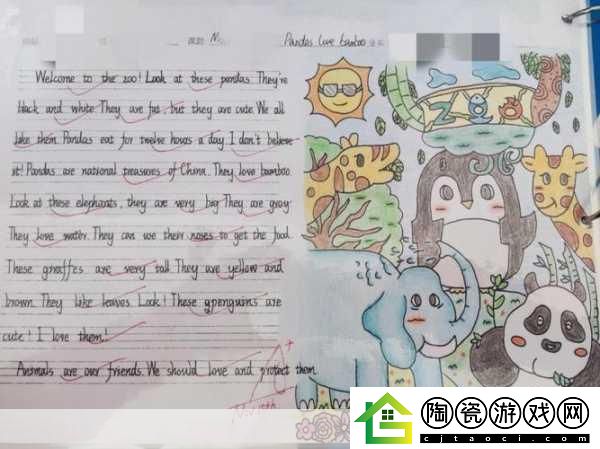 Pandas love bamboo
Welcome to the zoo! Look at these pandas. They're
black and white. They are fat, but they are cute. We all
like them. Pandas eat for twelve hours a day. I don't believe
it! Pandas are national treasures of China. They love bamboo.
Look at these elephants, they are very big. They are gray.
They love water. They can use their noses to get the food.
These giraffes are very tall. They are yellow and
brown. They like leaves. Look! These penguins are
cute! I love them!
Animals are our friends. We should love and protect them.
A+
Zoo
陶瓷游戏网
cjtaoci.com